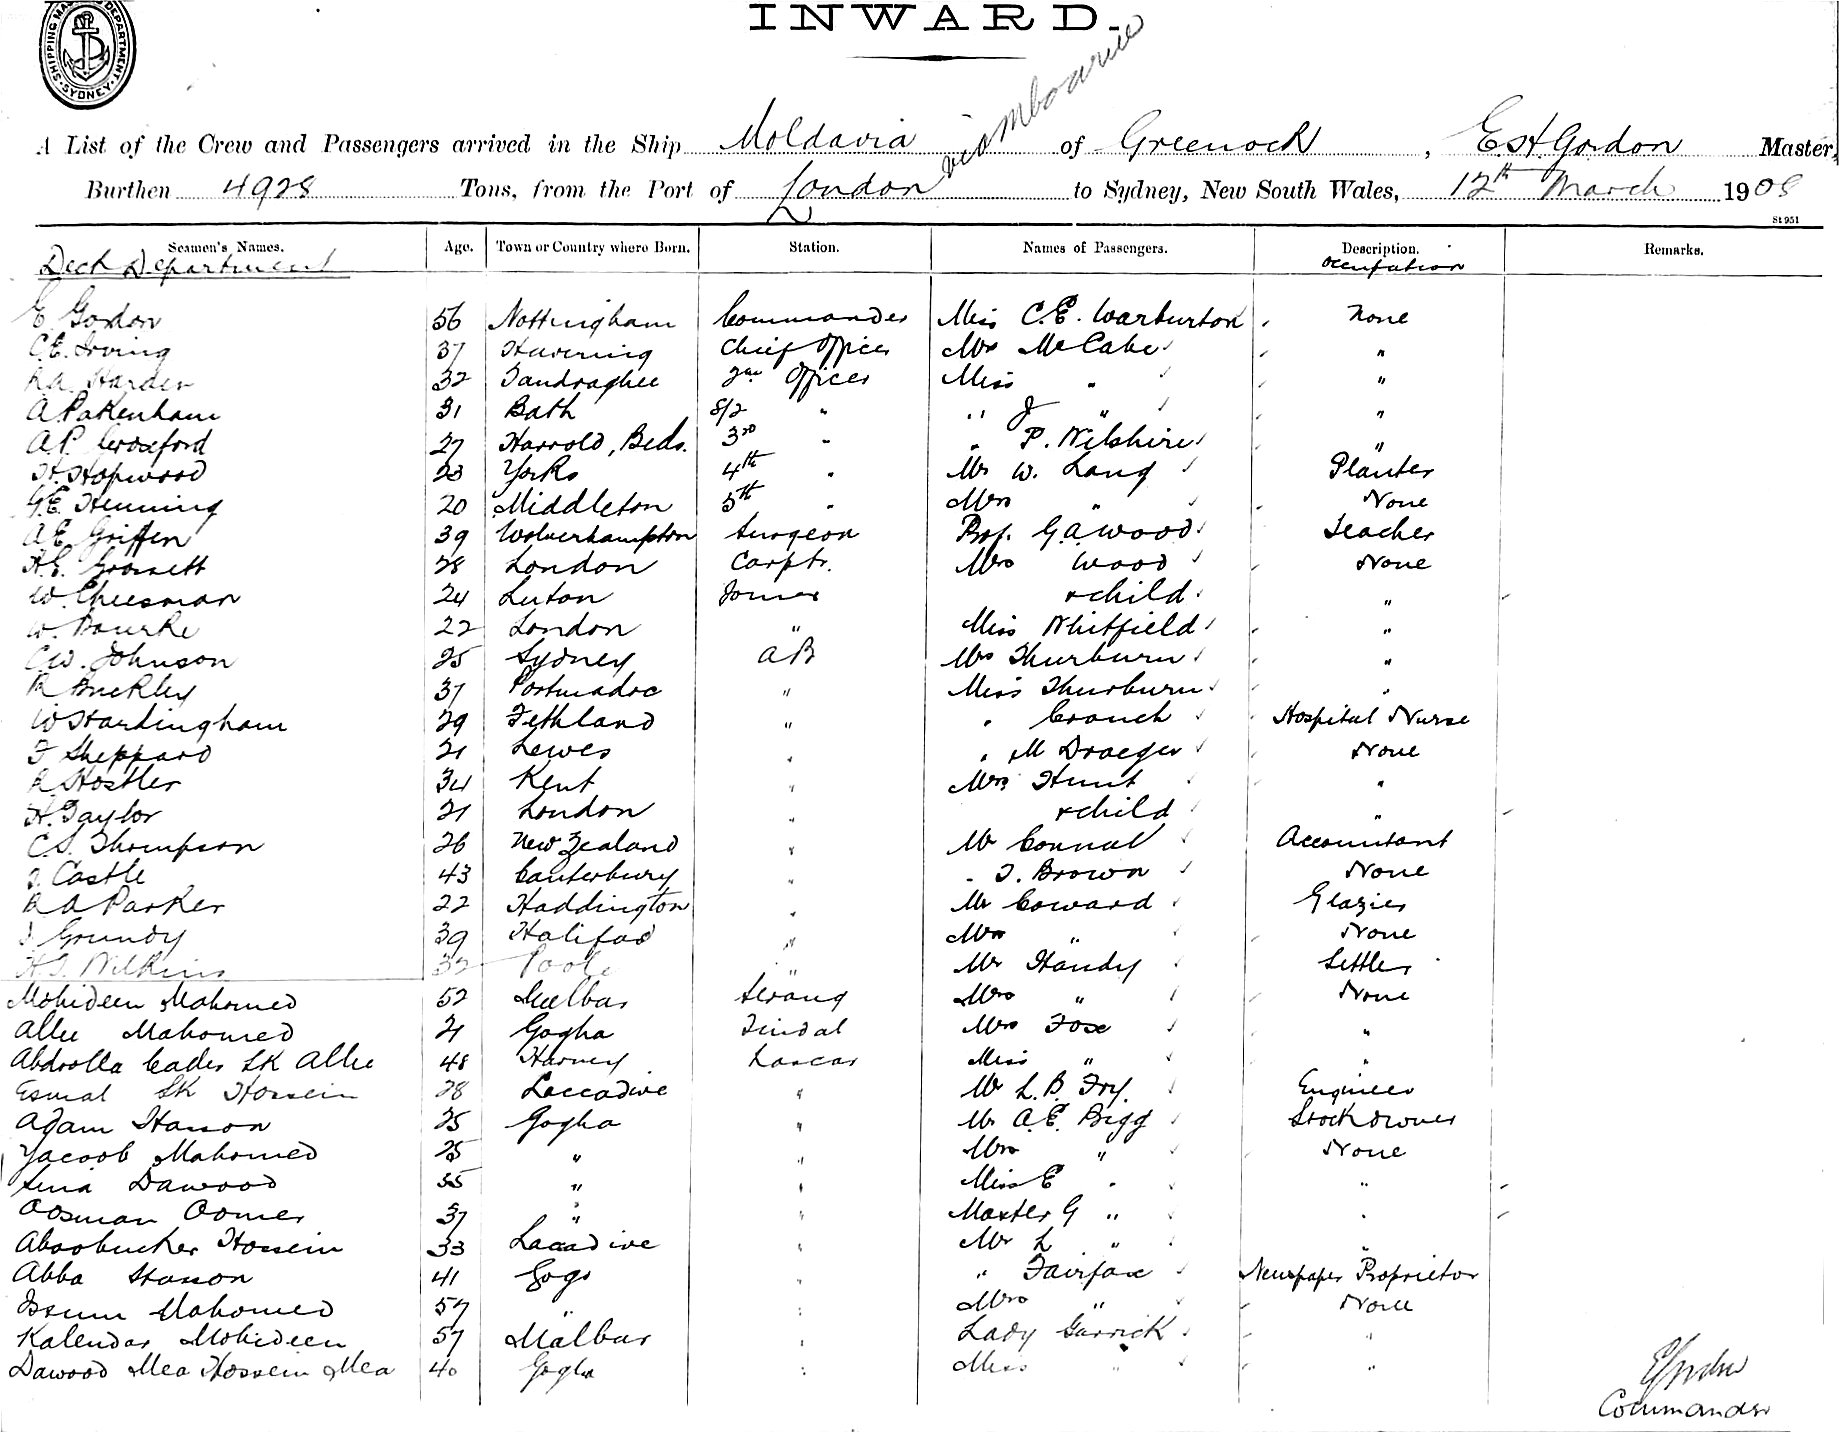 INWARD.
SHIPPING MASTER'S DEPARTMENT SYDNEY
via Melbourne
A List of the Crew and Passengers arrived in the Ship Moldavia of Greenock, E. H. Gordon Master,
Burthen 4928 Tons, from the Port of London to Sydney, New South Wales, 12th March 1908
St 951
Seamen's Names. Age. Town or Country where Born. Station. Names of Passengers. Description. Remarks.
Deck Department Occupation
E. Gordon 56 Nottingham Commander Miss C.E. Warburton None
C.E. Irving 37 Havering Chief Officer Mrs McCabe "
R.A. Harden 32 Tandraghee 2nd Officer Miss " "
A Pakenham 31 Bath S/2 " " J " "
A.P. Croxford 27 Harrold, Beds. 3rd " " P. Wilshire "
H. Hopwood 23 Yorks 4th " Mr W. Lang Planter
G.E. Henning 20 Middleton 5th " Mrs " None
A.E. Griffen 39 Wolverhampton Surgeon Prof. G.A. Wood Teacher
H.E. Grossett 28 London Carptr. Mrs Wood None
W. Cheesman 24 Luton Joiner & child "
W. Bourke 22 London " Miss Whitfield "
C.W. Johnson 25 Sydney AB Mrs Thurburn "
R Buckley 37 Portmadoc " Miss Thurburn "
W Hardingham 29 Fethland " " Crouch Hospital Nurse
F Sheppard 21 Lewes " " M Draeger None
R Hostler 34 Kent " Mrs Hunt "
H. Taylor 21 London " & child "
C.S. Thompson 26 New Zealand " Mr Connal Accountant
J. Castle 43 Canterbury " " T. Brown None
R A Parker 22 Haddington " Mr Coward Glazier
J Grundy 39 Halifax " Mrs " None
H.J. Wilkins 32 Poole " Mr Handy Settler
Mohideen Mahomed 52 Malbar Serang Mrs " None
Allee Mahomed 21 Gogha Tindal Mrs Foxe "
Abdoolla Cader Sk Allee 48 Harney Lascar Miss " "
Esmal Sk Hossein 28 Laccadive " Mr L.B. Fry. Engineer
Adam Hasson 25 Gogha " Mr A.E. Bigg Stockowner
Yacoob Mahomed 25 " " Mrs " None
Sina Dawood 35 " " Miss E " "
Oosman Oomer 37 " " Master G " "
Aboobucker Hossein 33 Lacadive " Mr L " "
Abba Hasson 41 Gogo " " Fairfax Newspaper Proprietor
Issum Mahomed 57 " " Mrs " None
Kalendar Mohideen 57 Malbar " Lady Garrick "
Dawood Mea Hossein Mea 40 Gogha " Miss " "
E Gordon
Commander